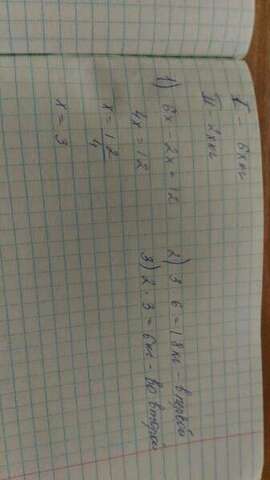 I - 6x кг
II - 2x кг
1) 6x - 2x = 12
4x = 12
x = 12/4
x = 3
2) 3 · 6 = 18 кг - в первой
3) 2 · 3 = 6 кг - во второй